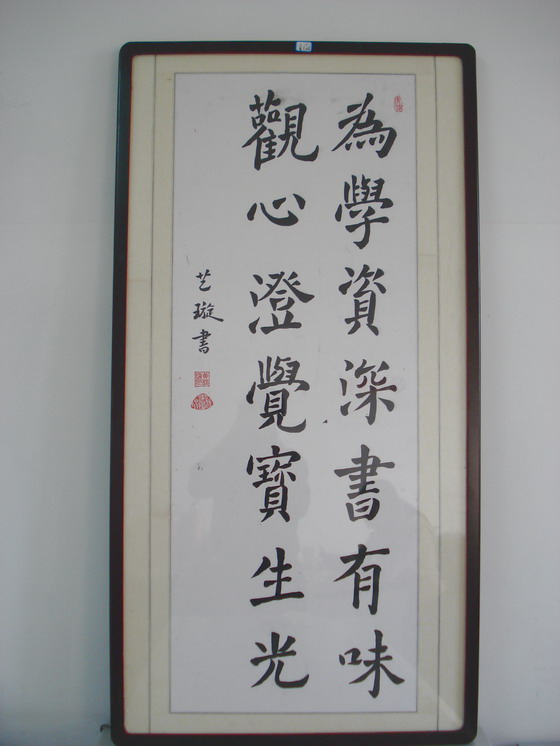 為學資深書有味
觀心澄覺寶生光
艺璇書